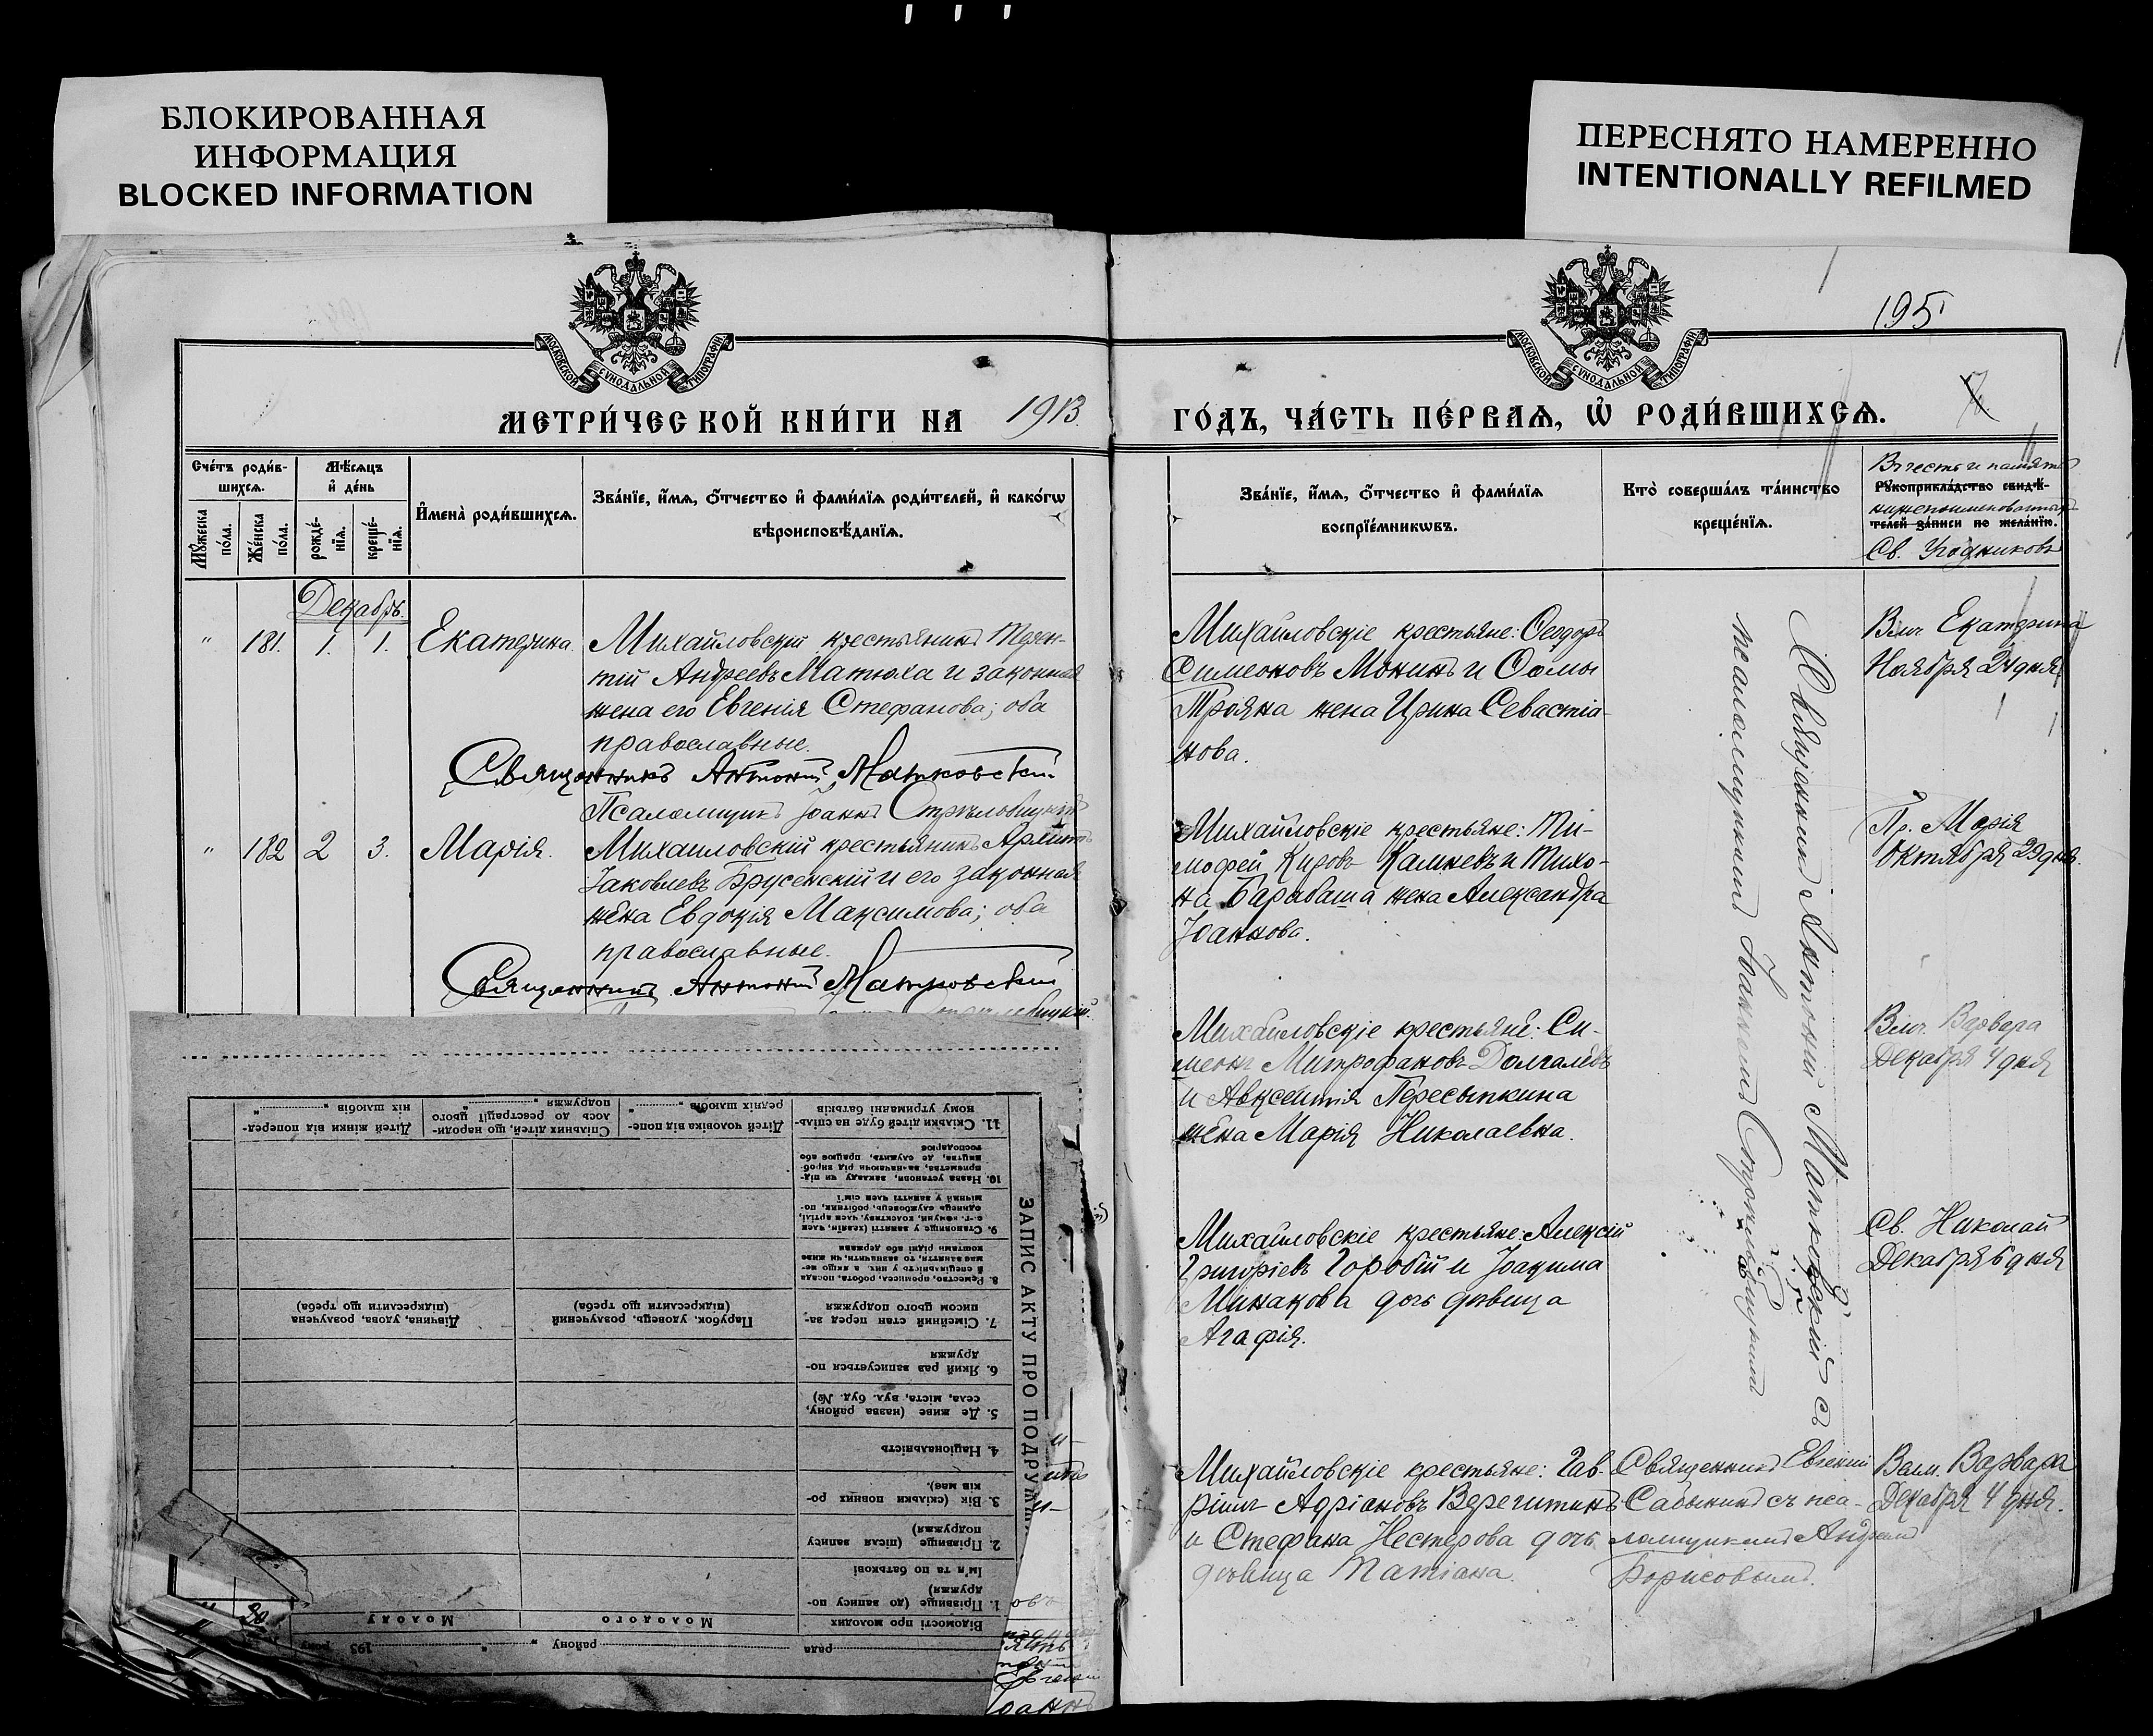 БЛОКИРОВАННАЯ
ИНФОРМАЦИЯ
BLOCKED INFORMATION
ПЕРЕСНЯТО НАМЕРЕННО
INTENTIONALLY REFILMED
195
МОСКОВСКОЙ СѴНОДАЛЬНОЙ ТИПОГРАФІИ
МОСКОВСКОЙ СѴНОДАЛЬНОЙ ТИПОГРАФІИ
МЕТРИ́ЧЕСКОЙ КНИ́ГИ НА 1913
ГО́ДЪ, ЧА́СТЬ ПЕ́РВАѦ, Ѡ҆ РОДИ́ВШИХСѦ.
Сче́тъ роди́в-
шихсѧ.
Мѣ́сѧцъ
и҆ де́нь
Мꙋ́жеска
по́ла.
Же́нска
по́ла.
рожде́-
нїѧ.
креще́-
нїѧ.
И҆мена̀ роди́вшихсѧ.
Зва́нїе, и҆́мѧ, ѻ҆́тчество и҆ фами́лїѧ роди́телей, и҆ како́гѡ
вѣроисповѣ́данїѧ.
Зва́нїе, и҆́мѧ, ѻ҆́тчество и҆ фами́лїѧ
воспрїе́мникѡвъ.
Кто̀ соверша́лъ та́инство
креще́нїѧ.
Въ честь и память
Рꙋкоприкла́дство свидѣ́-
телей за́писи по жела́нїю.
Св. Угодниковъ
Декабрь.
" 181. 1. 1. Екатерина.
Михайловскій крестьянинъ Терен-
тій Андреевъ Матюха и законная
жена его Евгенія Стефанова; оба
православные.
Священникъ Антоній Матковскій.
Псаломщикъ Іоаннъ
Михайловскіе крестьяне: Ѳеодоръ
Симеоновъ Монинъ и Ѳомы
Трояна жена Ирина Севастіа-
нова.
Влч. Екатерина
Ноября 24 дня
" 182 2 3. Марія.
Михаиловскій крестьянинъ
Іаковлевъ Брусенскій и его законная
жена Евдокія Максимова; оба
православные.
Священникъ Антоній Матковскій
Михайловскіе крестьяне: Ти-
мофей Калиневъ и Тихо-
на Барабаша жена Александра
Іоаннова.
Пр. Марія
Октября 29 дня.
Михайловскіе крестьяне: Си-
меонъ Митрофановъ Долгалевъ
и Авксентія Пересыпкина
жена Марія Николаевна.
Влч. Варвара
Декабря 4 дня
Михайловскіе крестьяне: Алексій
Григоріевъ Горобій и Іоакима
Минакова дочь дѣвица
Агафія.
Св. Николай
Декабря 6 дня
Священникъ Антоній Матковскій съ
псаломщикомъ Іоанномъ
Михайловскіе крестьяне: Гав-
ріилъ Адріановъ Веретитинъ
и Стефана Нестерова дочь
дѣвица Татіана.
Священникъ Евгеній
съ пса-
ломщикомъ
Борисовымъ.
Велм. Варвара
Декабря 4 дня.
ЗАПИС АКТУ ПРО ПОДРУЖ
193 року
району
рада
Відомості про молодих
Молодого
Молоду
1. Прізвище (до запису по-
дружжя)
Ім'я та по батькові
2. Прізвище (після запису
подружжя)
3. Вік (скільки повних ро-
ків має).
4. Національність
5. Де живе (назва району,
села, міста, вул. буд. №)
6. Який раз записується по-
дружжя
7. Сімейний стан перед за-
писом цього подружжя
Парубок, удовець, розлучений
(підкреслити що треба)
Дівчина, удова, розлучена
(підкреслити що треба)
8. Ремество, промисел, робота, посада
й спеціальність у них, а якщо не-
має заняття, то зазначити, чи живе
коштами рідні або держави
9. Становище у занятті (хазяїн, член
с.-г. комуни, колективу, член артілі,
одинець службовець, робітник, по-
мічний у занятті член сім'ї
10. Назва установи, закладу чи під-
приємства, зазначаючи рід вироб-
ництва, де служить, працює або
господарює
11. Скільки дітей буде на спіль-
ному утриманні батьків
Дітей чоловіка від попе-
редніх шлюбів
Спільних дітей, що народи-
лось до реєстрації цього
подружжя
Дітей жінки від поперед-
ніх шлюбів